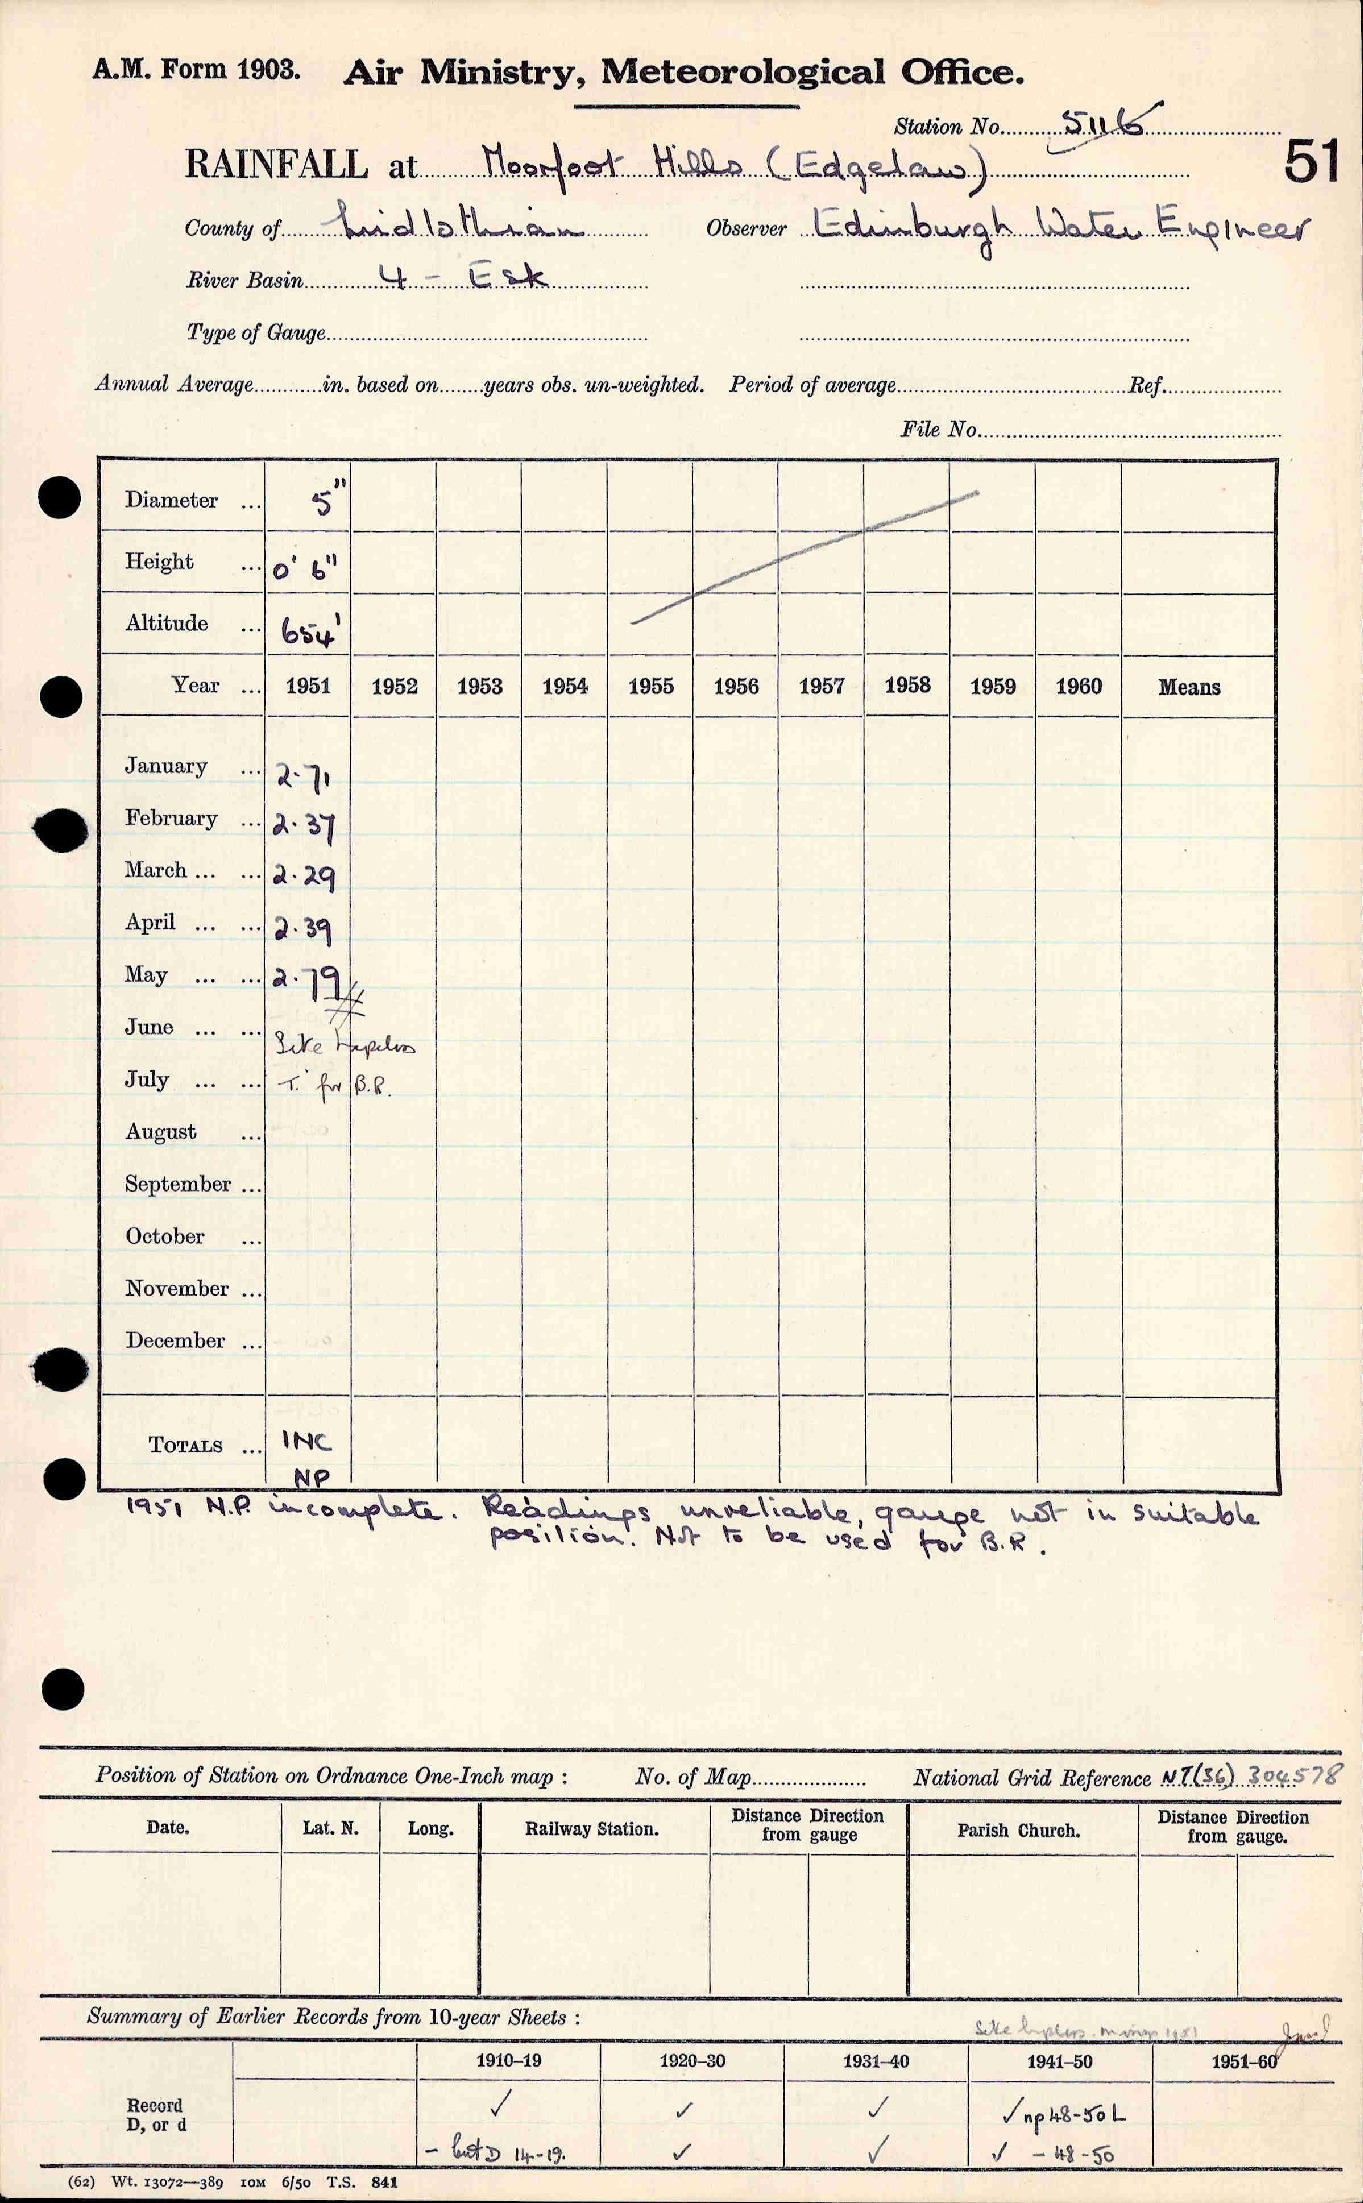 A.M. Form 1903. Air Ministry, Meteorological Office.
Station No. 5116
RAINFALL at Moorfoot Hills (Edgelaw) 51
County of Midlothian Observer Edinburgh Water Engineer
River Basin 4 - Esk
Type of Gauge
Annual Average in. based on years obs. un-weighted. Period of average Ref.
File No.
Diameter ... 5"
Height ... 0' 6"
Altitude ... 654'
Year ... 1951 1952 1953 1954 1955 1956 1957 1958 1959 1960 Means
January ... 2.71
February ... 2.37
March ... ... 2.29
April ... ... 2.39
May ... ... 2.79
June ... ... Site
July ... ... T. for B.R.
August ...
September ...
October ...
November ...
December ...
TOTALS ... INC
NP
1951 N.P. incomplete. Readings unreliable, gauge not in suitable
position. Not to be used for B.R.
Position of Station on Ordnance One-Inch map : No. of Map National Grid Reference NT(36) 304578
Date. Lat. N. Long. Railway Station. Distance Direction from gauge Parish Church. Distance Direction from gauge.
Summary of Earlier Records from 10-year Sheets :
Site 1951
1910–19 1920–30 1931–40 1941–50 1951–60
Record ✓ ✓ ✓ ✓ np 48-50 L
D, or d - but D 14-19. ✓ ✓ ✓ - 48-50
(62) Wt. 13072—389 10M 6/50 T.S. 841